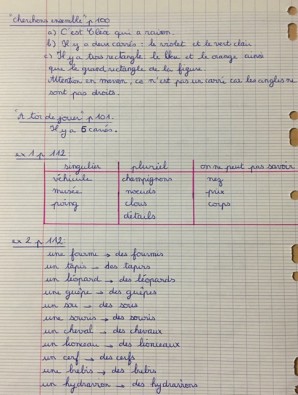 "Cherchons ensemble" p 100
a) C'est Cléa qui a raison.
b) Il y a deux carrés : le violet et le vert clair
c) Il y a trois rectangle : le bleu et le orange aussi
que le grand rectangle de la figure.
Attention en marron, ce n'est pas un carré car les angles ne
sont pas droits.
"A toi de jouer" p 101.
Il y a 5 carrés.
ex 1 p 112
singulier pluriel on ne peut pas savoir
véhicule champignons nez
musée noeuds prix
poing clous corps
détails
ex 2 p 112:
une fourmi → des fourmis
un tapir → des tapirs
un léopard → des léopards
une guêpe → des guêpes
un → des
une souris → des souris
un cheval → des chevaux
un lionceau → des lionceaux
un cerf → des cerfs
une brebis → des brebis
un → des